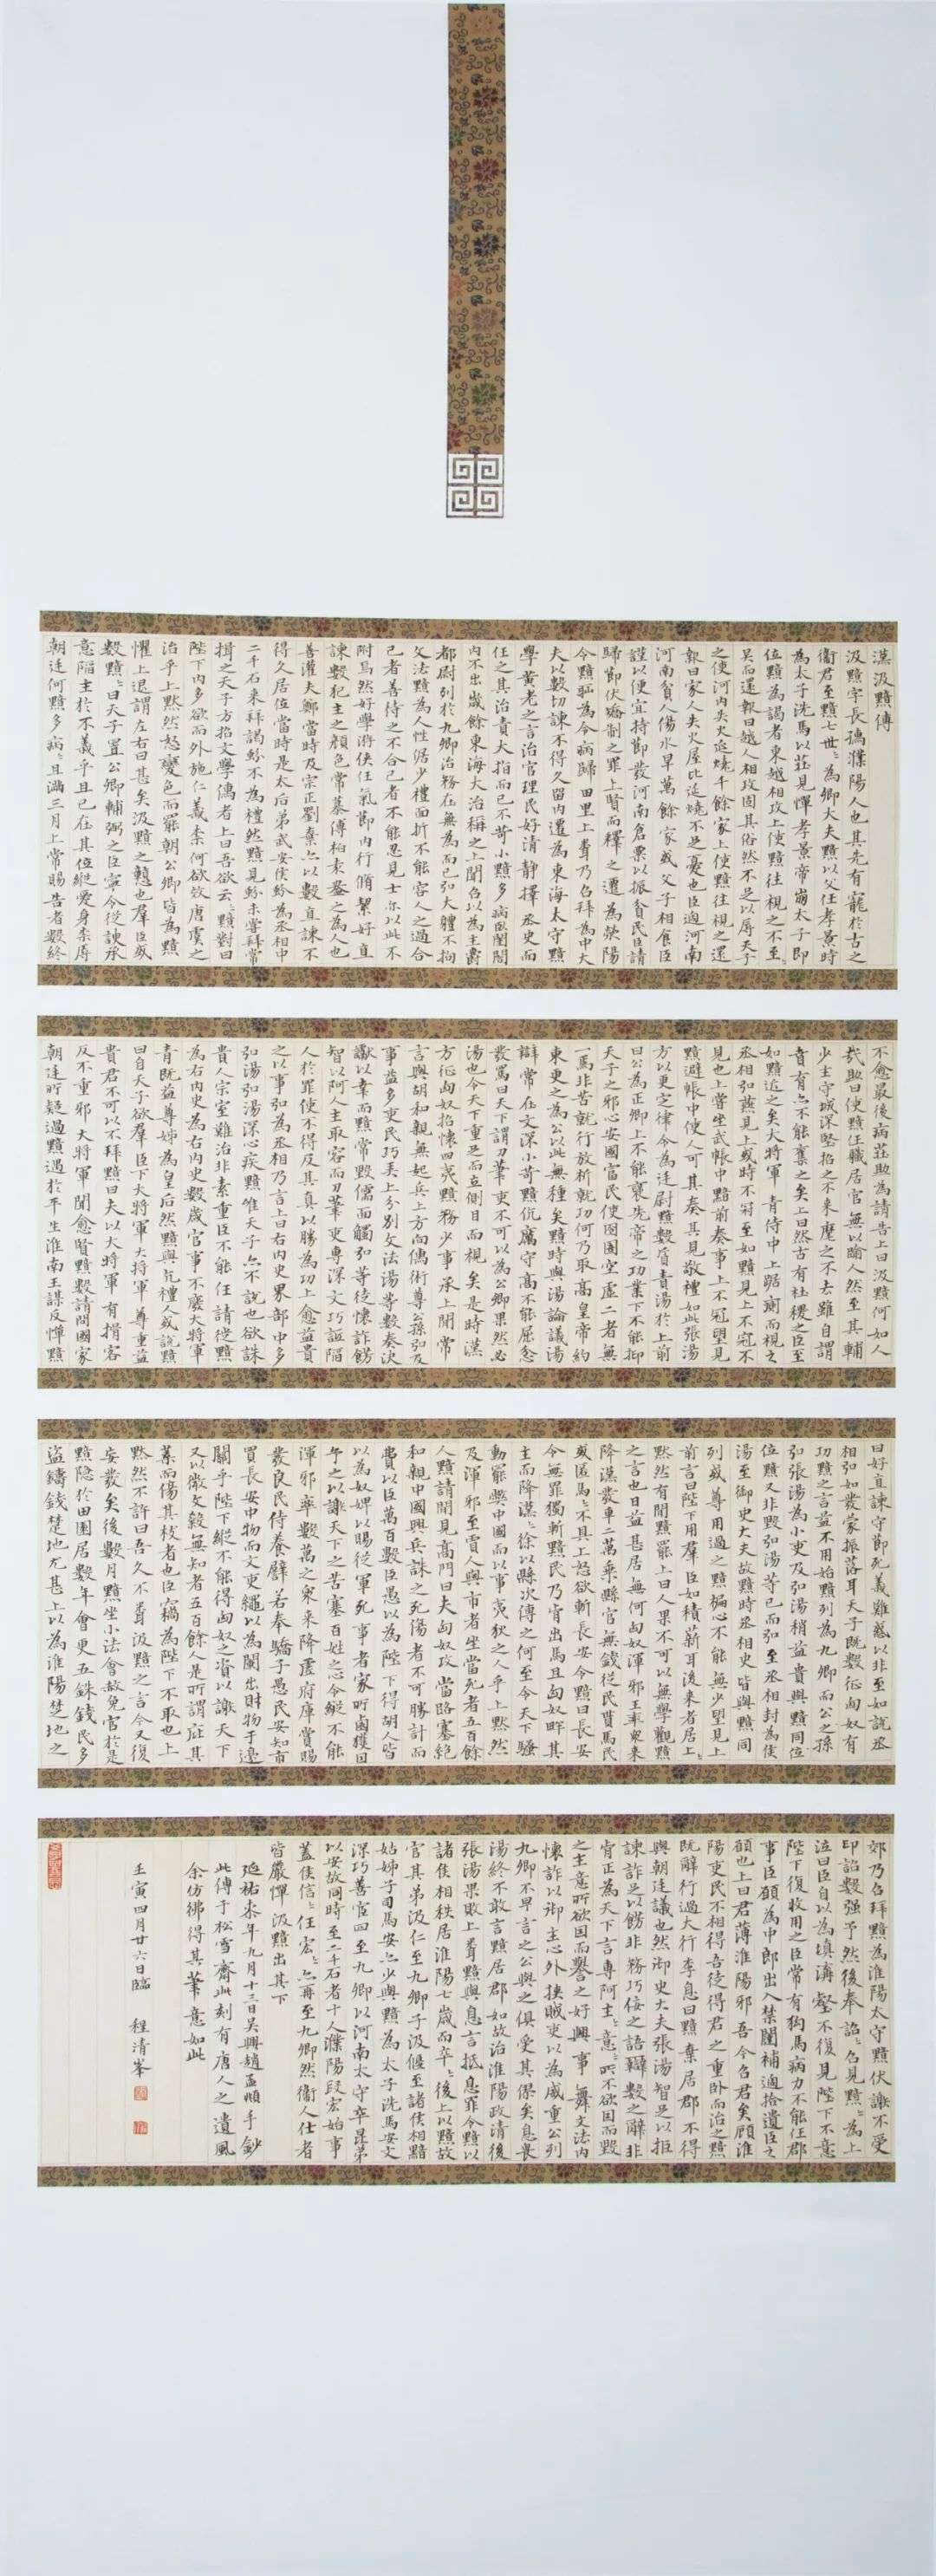 漢汲黯傳
汲黯字長孺濮陽人也其先有寵於古之
衛君至黯七世〻為卿大夫黯以父任孝景時
為太子洗馬以莊見憚孝景帝崩太子即
位黯為謁者東越相攻上使黯往視之不至〻
吳而還報曰越人相攻固其俗然不足以辱天子
之使河內失火延燒千餘家上使黯往視之還
報曰家人失火屋比延燒不足憂也臣過河南
河南貧人傷水旱萬餘家或父子相食臣
謹以便宜持節發河南倉粟以振貧民臣請
歸節伏矯制之罪上賢而釋之遷為滎陽
令黯恥為令病歸田里上聞乃召拜為中大
夫以數切諫不得久留內遷為東海太守黯
學黃老之言治官理民好清靜擇丞史而
任之其治責大指而已不苛小黯多病臥閨閤
內不出歲餘東海大治稱之上聞召以為主爵
都尉列於九卿治務在無為而已弘大體不拘
文法黯為人性倨少禮面折不能容人之過合
己者善待之不合己者不能忍見士亦以此不
附焉然好學游俠任氣節內行脩絜好直
諫數犯主之顏色常慕傅柏袁盎之為人也
善灌夫鄭當時及宗正劉棄亦以數直諫不
得久居位當時是太后弟武安侯蚡為丞相中
二千石來拜謁蚡不為禮然黯見蚡未嘗拜常
揖之天子方招文學儒者上曰吾欲云〻黯對曰
陛下內多欲而外施仁義柰何欲效唐虞之
治乎上默然怒變色而罷朝公卿皆為黯
懼上退謂左右曰甚矣汲黯之戇也羣臣或
數黯〻曰天子置公卿輔弼之臣寧令從諛承
意陷主於不義乎且已在其位縱愛身柰辱
朝廷何黯多病〻且滿三月上常賜告者數終
不愈最後病莊助為請告上曰汲黯何如人
哉助曰使黯任職居官無以踰人然至其輔
少主守城深堅招之不來麾之不去雖自謂
賁育亦不能奪之矣上曰然古有社稷之臣至
如黯近之矣大將軍青侍中上踞廁而視之
丞相弘燕見上或時不冠至如黯見上不冠不
見也上嘗坐武帳中黯前奏事上不冠望見
黯避帳中使人可其奏其見敬禮如此張湯
方以更定律令為廷尉黯數質責湯於上前
曰公為正卿上不能褒先帝之功業下不能抑
天子之邪心安國富民使囹圄空虛二者無
一焉非苦就行放析就功何乃取高皇帝約
束更之為公以此無種矣黯時與湯論議湯
辯常在文深小苛黯伉厲守高不能屈忿
發罵曰天下謂刀筆吏不可以為公卿果然必
湯也令天下重足而立側目而視矣是時漢
方征匈奴招懷四夷黯務少事承上閒常
言與胡和親無起兵上方向儒術尊公孫弘及
事益多吏民巧弄上分別文法湯等數奏決
讞以幸而黯常毀儒面觸弘等徒懷詐飾
智以阿人主取容而刀筆吏專深文巧詆陷
人於罪使不得反其真以勝為功上愈益貴
弘湯弘湯深心疾黯唯天子亦不說也欲誅
之以事弘為丞相乃言上曰右內史界部中多
貴人宗室難治非素重臣不能任請徙黯
為右內史為右內史數歲官事不廢大將軍
青既益尊姊為皇后然黯與亢禮人或說黯
曰自天子欲羣臣下大將軍大將軍尊重益
貴君不可以不拜黯曰夫以大將軍有揖客
反不重邪大將軍聞愈賢黯數請問國家
朝廷所疑遇黯過於平生淮南王謀反憚黯
曰好直諫守節死義難惑以非至如說丞
相弘如發蒙振落耳天子既數征匈奴有
功黯之言益不用始黯列為九卿而公孫
弘張湯為小吏及弘湯稍益貴與黯同位
黯又非毀弘湯等已而弘至丞相封為侯
湯至御史大夫故黯時丞相史皆與黯同
列或尊用過之黯褊心不能無少望見上
前言曰陛下用羣臣如積薪耳後來者居上〻
默然有閒黯罷上曰人果不可以無學觀黯
之言也日益甚居無何匈奴渾邪王率眾來
降漢發車二萬乘縣官無錢從民貰馬民
或匿馬〻不具上怒欲斬長安令黯曰長安
令無罪獨斬黯民乃肯出馬且匈奴畔其
主而降漢〻徐以縣次傳之何至令天下騷
動罷獘中國而以事夷狄之人乎上默然
及渾邪至賈人與市者坐當死者五百餘
人黯請閒見高門曰夫匈奴攻當路塞絕
和親中國興兵誅之死傷者不可勝計而
費以臣萬百數臣愚以為陛下得胡人皆
以為奴婢以賜從軍死事者家所鹵獲因
予之以謝天下之苦塞百姓之心今縱不能
渾邪率數萬之眾來降虛府庫賞賜
發良民侍養譬若奉驕子愚民安知市
買長安中物而文吏繩以為闌出財物于邊
關乎陛下縱不能得匈奴之資以謝天下
又以微文殺無知者五百餘人是所謂庇其
葉而傷其枝者也臣竊為陛下不取也上
默然不許曰吾久不聞汲黯之言今又復
妄發矣後數月黯坐小法會赦免官於是
黯隱於田園居數年會更五銖錢民多
盜鑄錢楚地尤甚上以為淮陽楚地之
郊乃召拜黯為淮陽太守黯伏謝不受
印詔數強予然後奉詔〻召見黯〻為上
泣曰臣自以為填溝壑不復見陛下不意
陛下復收用之臣常有狗馬病力不能任郡
事臣願為中郎出入禁闥補過拾遺臣之
願也上曰君薄淮陽邪吾今召君矣顧淮
陽吏民不相得吾徒得君之重臥而治之黯
既辭行過大行李息曰黯棄居郡不得
與朝廷議也然御史大夫張湯智足以拒
諫詐足以飾非務巧佞之語辯數之辭非
肯正為天下言專阿主〻意所不欲因而毀
之主意所欲因而譽之好興事舞文法內
懷詐以御主心外挾賊吏以為威重公列
九卿不早言之公與之俱受其僇矣息畏
湯終不敢言黯居郡如故治淮陽政清後
張湯果敗上聞黯與息言抵息罪令黯以
諸侯相秩居淮陽七歲而卒〻後上以黯故
官其弟汲仁至九卿子汲偃至諸侯相黯
姑姊子司馬安亦少與黯為太子洗馬安文
深巧善宦四至九卿以河南太守卒昆弟
以安故同時至二千石者十人濮陽段宏始事
蓋侯信〻任宏〻亦再至九卿然衛人仕者
皆嚴憚汲黯出其下
延祐柒年九月十三日吳興趙孟頫手鈔
此傳于松雪齋此刻有唐人之遺風
余仿彿得其筆意如此
壬寅四月廿六日臨 程清峯